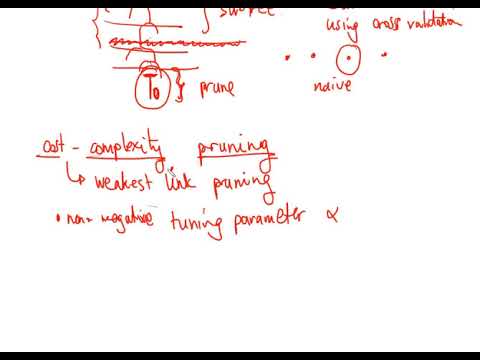 using cross validation
T₀ prune
naive
cost - complexity pruning
↳ weakest link pruning
• non-negative tuning parameter α